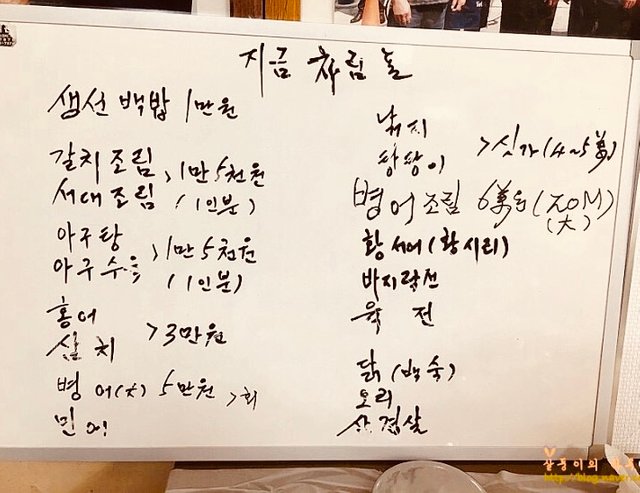 지금 처림돌
생선 백밥 1만원
갈치 조림
서대 조림
>1만 5천원
(1인분)
아구탕
아구수육
>1만 5천원
(1인분)
홍어
삼치
>3만원
병어(大) 5만원 >회
민어
낙지
짱짱이
>싯가(4~5萬)
병어조림 6萬원(大)
황서어(황시리)
바지락전
육전
닭(백숙)
오리
삼겹살
살풍이의
http://blog.nave